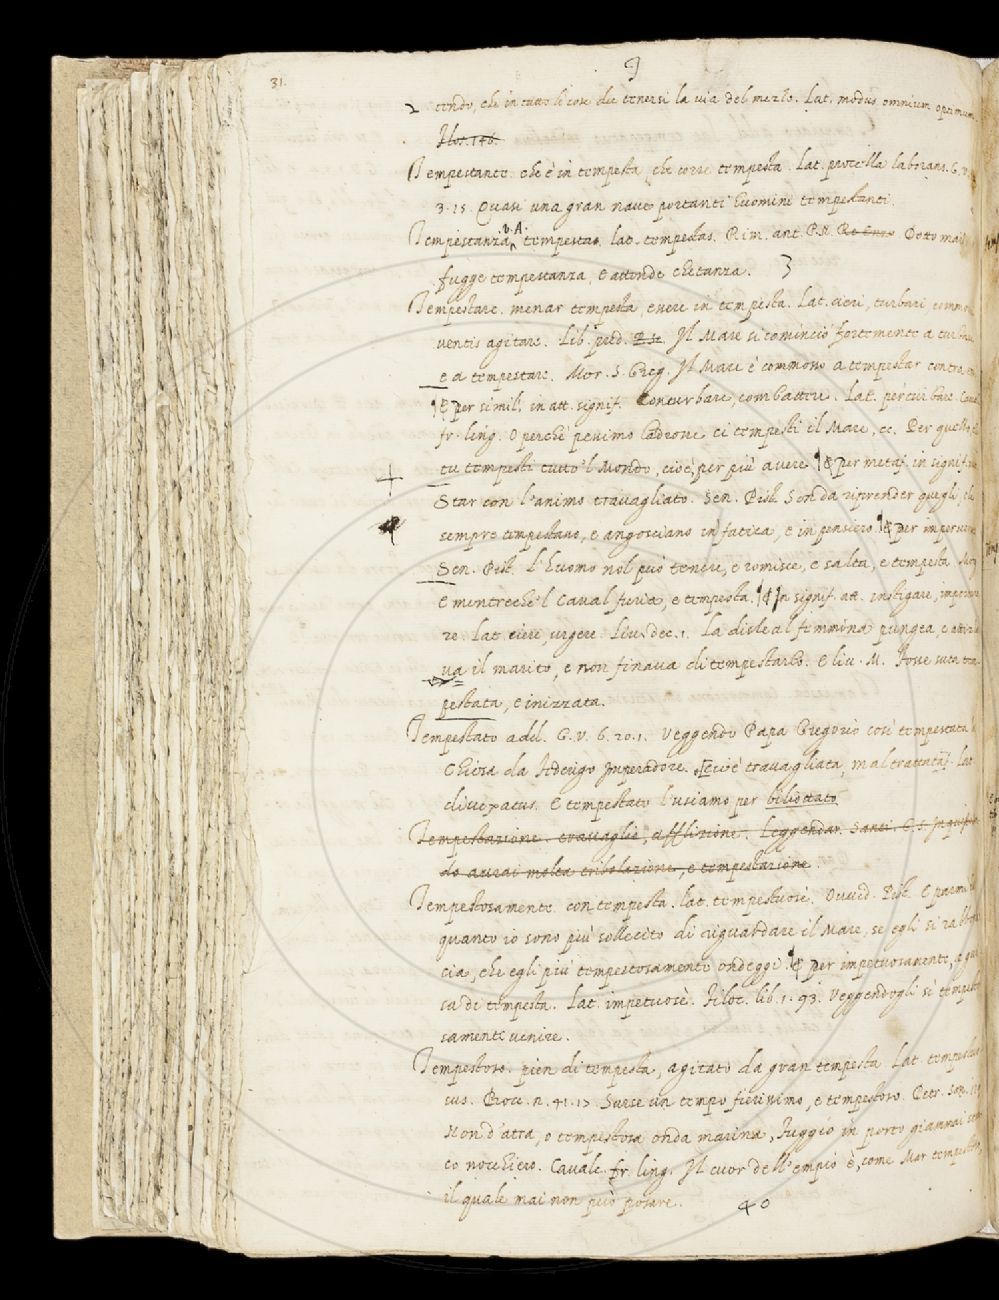 31.
tendo, che in tutte le cose dee tenersi la via del mezzo. Lat. modus omnium optimum
Filoc. 146.
Tempestante. che è in tempesta, che corre tempesta. Lat. procella laborans. G. V.
3. 15. Quasi una gran nave portanti huomini tempestanti.
Tempestanza. V. A. tempestas. lat. tempestas. Rim. ant. P. N. Re Enzo Dotto
fugge tempestanza, e attende chetanza. 3
Tempestare. menar tempesta, evere in tempesta. Lat. cieri, turbari,
ventis agitari. Lib. pred. Il Mare si cominciò fortemente a
e a tempestare. Mor. S. Greg. Il Mare è commosso a tempestar contra
E per simil. in att. signif. Conturbare, combattere. Lat. perturbare.
fr. ling. O perchè pessimo ladrone ci tempesti il Mare, ec. Per quello
tu tempesti tutto 'l Mondo, cioè, per più avere E per metaf. in signif.
Star con l'animo travagliato. Sen. Pist. Son da riprender quegli
sempre tempestano, e angosciano in fatica, e in pensiero E per
Sen. Pist. l'huomo nol può tenere, e romisce, e salta, e tempesta
E mentrechè 'l Caval furia, e tempesta. E In signif. att. instigare,
re. Lat. ciere, urgere. Liv. dec. 1. La disleal femmina pungea, e
va il marito, e non finava di tempestarlo. E liv. M. Fosse
pestata, e inizzata.
Tempestato add. G. V. 6. 20. 1. Veggendo Papa Gregorio così tempestata
Chiesa da Federigo Imperadore. cioè travagliata, maltrattata. Lat.
divexatus. E tempestato l'usiamo per biliottato
Tempestazione. travaglio, afflizione. Leggendar. Santi.
do avrai molta tribolazione, e tempestazione.
Tempestosamente. con tempesta. lat. tempestuose. Ovvid. Pist. E parmi
quanto io sono più sollecito di riguardare il Mare, se egli si
cia, che egli più tempestosamente ondeggi. E per impetuosamente, a
sa di tempesta. Lat. impetuosè. Filoc. lib. 1. 93. Veggendogli sì
samente venire.
Tempestoso. pien di tempesta, agitato da gran tempesta. Lat.
sus. Bocc. n. 41. 17. Surse un tempo fierissimo, e tempestoso. Petr. son.
Non d'atra, o tempestosa onda marina, fuggio in porto giammai
co nocchiero. Cavalc. fr. ling. Il cuor dell'empio è, come Mar
il quale mai non può posare.
40